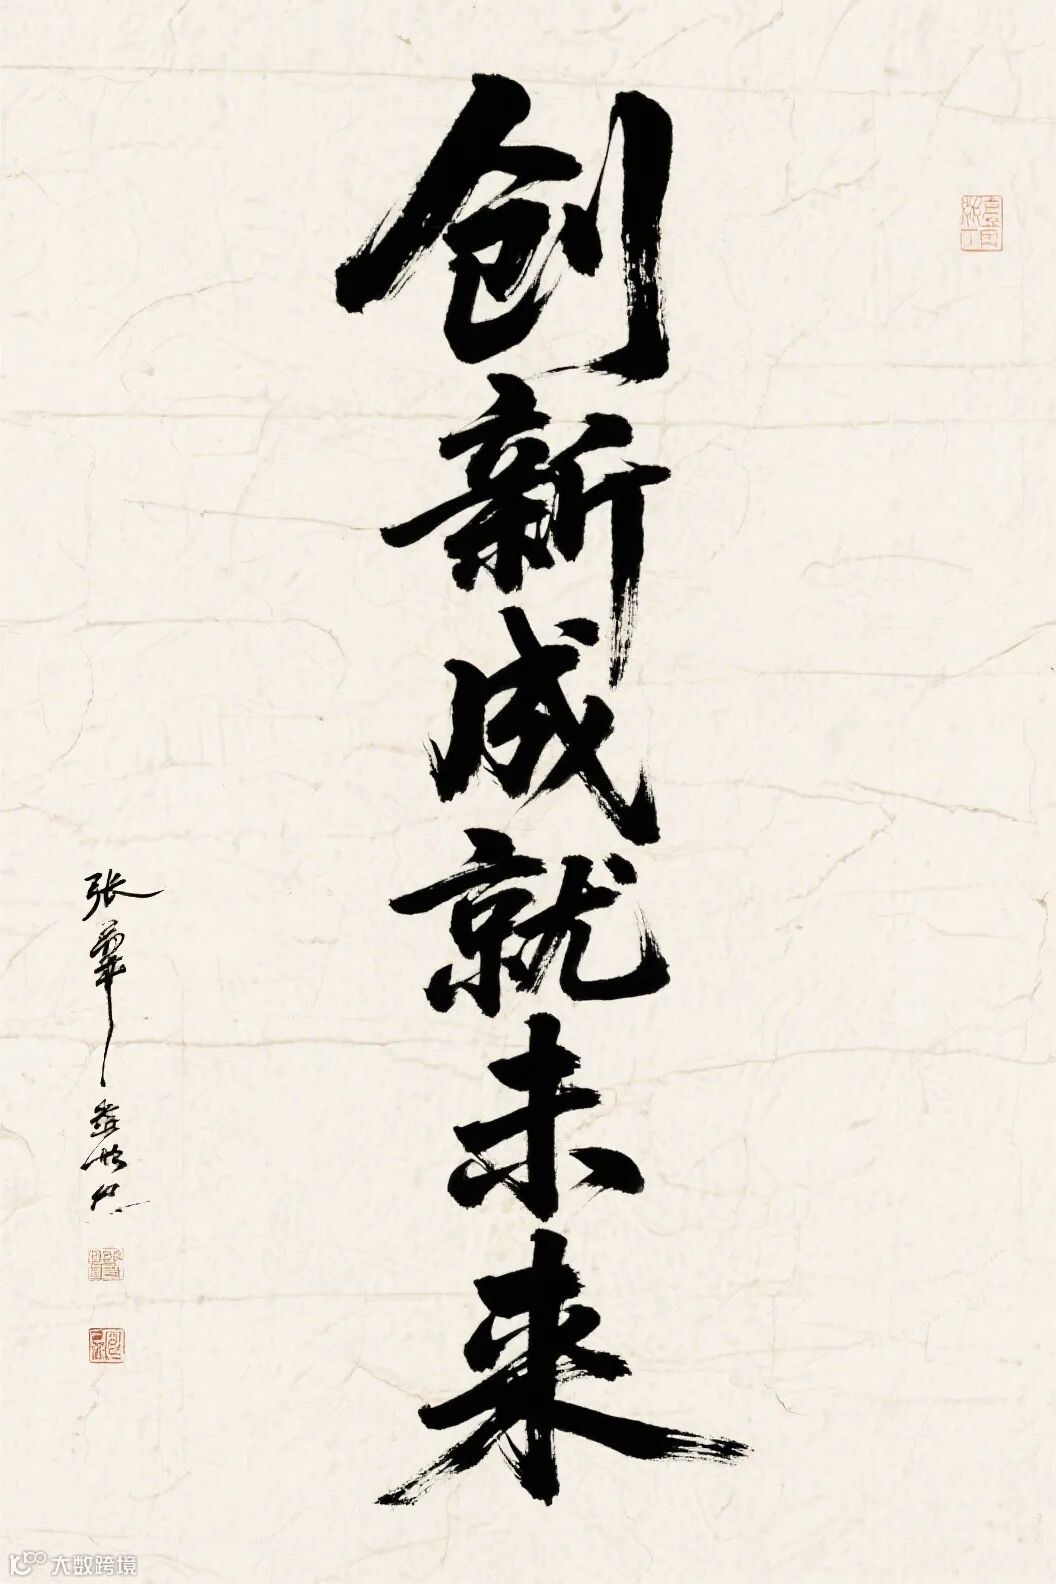 创新成就未来
张
大数跨境